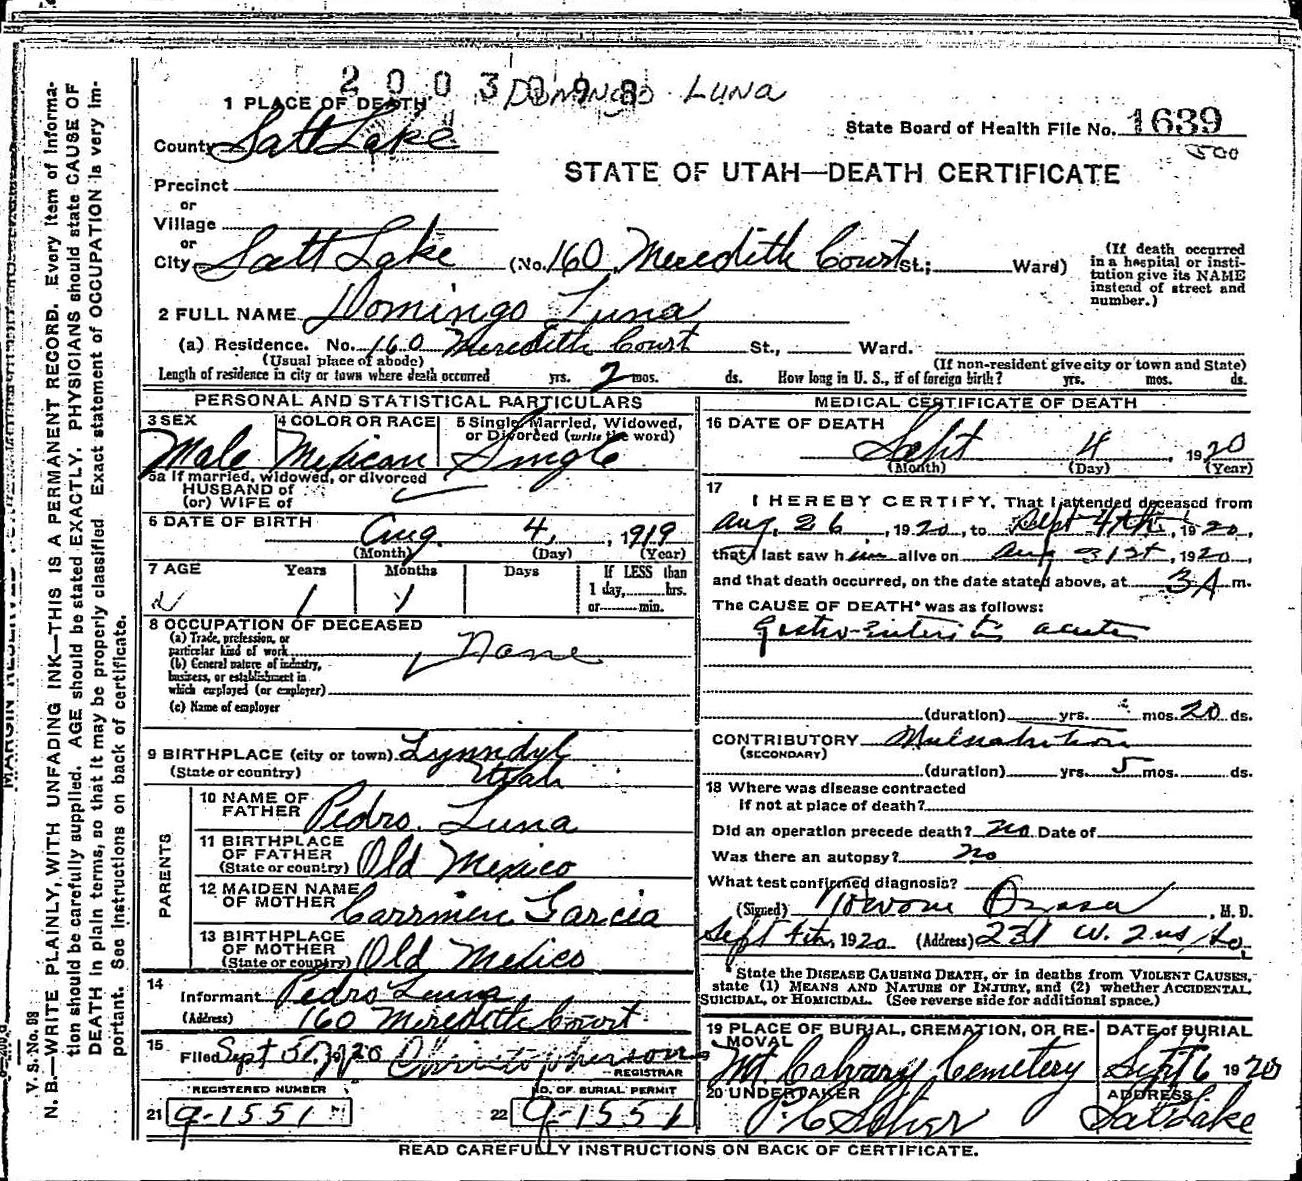 2003398 DOMINGO LUNA
1 PLACE OF DEATH
County Salt Lake
State Board of Health File No. 1639
500
STATE OF UTAH—DEATH CERTIFICATE
Precinct
or
Village
or
City Salt Lake (No. 160 Meredith Court St.; Ward)
(If death occurred in a hospital or insti-
tution give its NAME
instead of street and
number.)
2 FULL NAME Domingo Luna
(a) Residence. No. 160 Meredith Court St., Ward.
(Usual place of abode) (If non-resident give city or town and State)
Length of residence in city or town where death occurred yrs. 2 mos. ds. How long in U. S., if of foreign birth? yrs. mos. ds.
PERSONAL AND STATISTICAL PARTICULARS
3 SEX 4 COLOR OR RACE 5 Single, Married, Widowed,
or Divorced (write the word)
Male Mexican Single
5a If married, widowed, or divorced
HUSBAND of
(or) WIFE of
6 DATE OF BIRTH Aug. 4, 1919
(Month) (Day) (Year)
7 AGE Years Months Days If LESS than
1 day, hrs.
or min.
1 1
8 OCCUPATION OF DECEASED
(a) Trade, profession, or
particular kind of work None
(b) General nature of industry,
business, or establishment in
which employed (or employer)
(c) Name of employer
9 BIRTHPLACE (city or town) Lynndyl
(State or country) Utah
PARENTS
10 NAME OF
FATHER Pedro Luna
11 BIRTHPLACE
OF FATHER
(State or country) Old Mexico
12 MAIDEN NAME
OF MOTHER Carrmen Garcia
13 BIRTHPLACE
OF MOTHER
(State or country) Old Mexico
14
Informant Pedro Luna
(Address) 160 Meredith Court
15
Filed Sept 5 1920 Christopherson
REGISTRAR
REGISTERED NUMBER NO. OF BURIAL PERMIT
21 9-1551 22 9-1551
MEDICAL CERTIFICATE OF DEATH
16 DATE OF DEATH
Sept 4, 1920
(Month) (Day) (Year)
17
I HEREBY CERTIFY, That I attended deceased from
Aug. 26, 1920, to Sept 4th, 1920,
that I last saw him alive on Aug 31st, 1920,
and that death occurred, on the date stated above, at 3A m.
The CAUSE OF DEATH* was as follows:
Gastro-Enteritis acute
(duration) yrs. mos. 20 ds.
CONTRIBUTORY Malnutrition
(SECONDARY)
(duration) yrs. 5 mos. ds.
18 Where was disease contracted
if not at place of death?
Did an operation precede death? no Date of
Was there an autopsy? no
What test confirmed diagnosis?
(Signed) , M. D.
Sept 4th, 1920 (Address) 231 W. 2nd So.
*State the DISEASE CAUSING DEATH, or in deaths from VIOLENT CAUSES,
state (1) MEANS AND NATURE OF INJURY, and (2) whether ACCIDENTAL,
SUICIDAL, or HOMICIDAL. (See reverse side for additional space.)
19 PLACE OF BURIAL, CREMATION, OR RE-
MOVAL
DATE of BURIAL
Mt Calvary Cemetery Sept 6 1920
20 UNDERTAKER ADDRESS
Salt Lake
READ CAREFULLY INSTRUCTIONS ON BACK OF CERTIFICATE.
V. S. No. 98
N. B.—WRITE PLAINLY, WITH UNFADING INK—THIS IS A PERMANENT RECORD. Every item of informa-
tion should be carefully supplied. AGE should be stated EXACTLY. PHYSICIANS should state CAUSE OF
DEATH in plain terms, so that it may be properly classified. Exact statement of OCCUPATION is very im-
portant. See instructions on back of certificate.